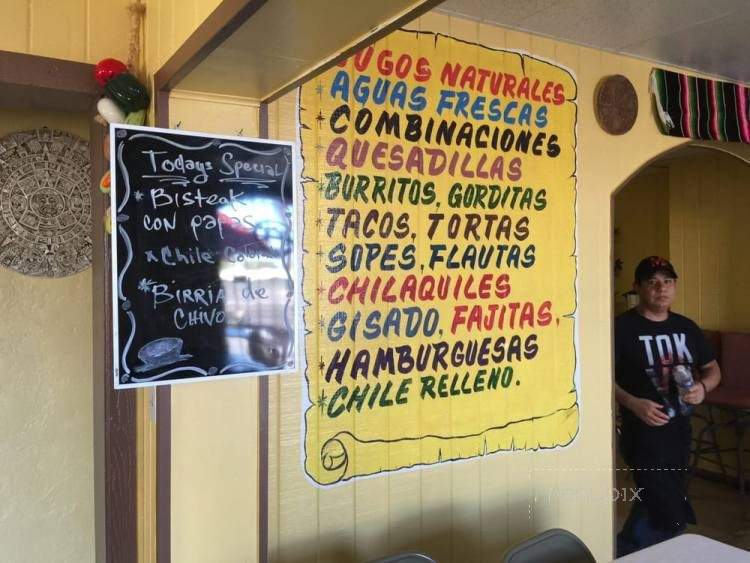 Todays Special
* Bisteak
con papas
* Chile Color
* BIRRIA de
CHIVO
JUGOS NATURALES
* AGUAS FRESCAS
* COMBINACIONES
QUESADILLAS
* BURRITOS, GORDITAS
* TACOS, TORTAS
* SOPES, FLAUTAS
* CHILAQUILES
* GISADO, FAJITAS,
* HAMBURGUESAS
* CHILE RELLENO.
TDK